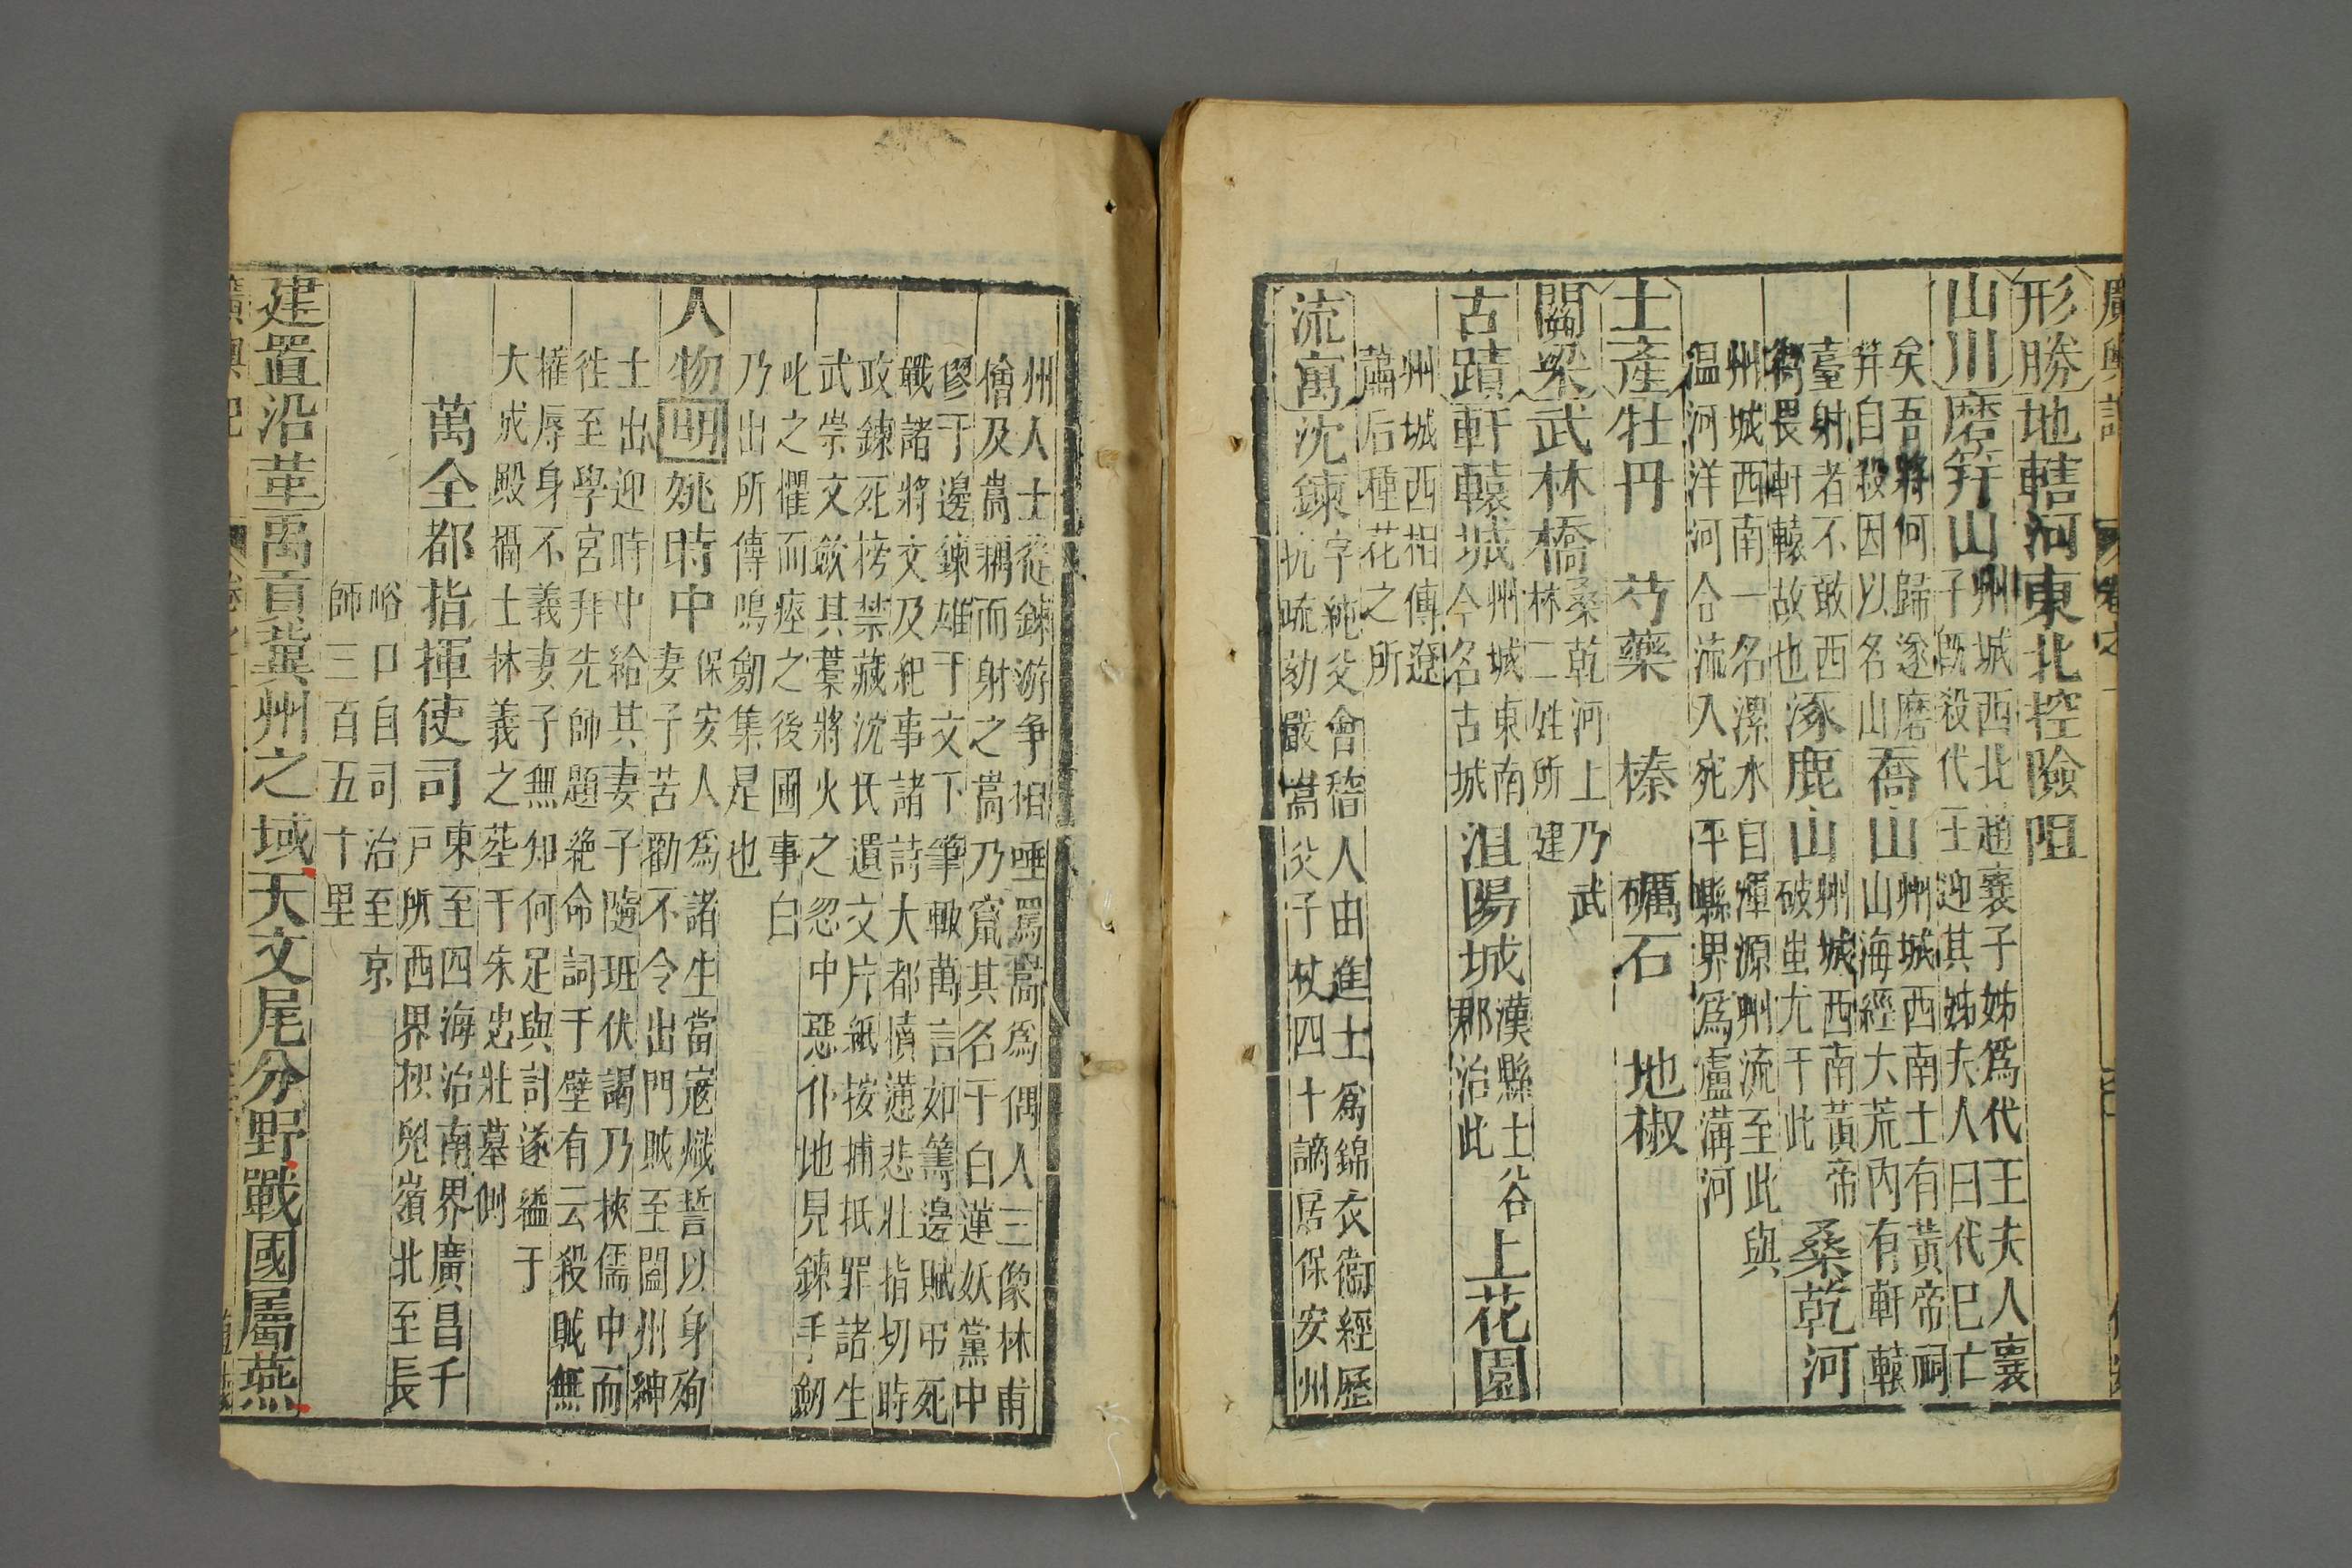 廣輿記
形勝地轄河東北控險阻
山川磨笄山州城西北趙襄子姊爲代王夫人襄
子旣殺代王迎其姊夫人曰代已亡
矣吾將何歸遂磨
笄自殺因以名山喬山州城西南土有黃帝祠
山海經大荒內有軒轅
臺射者不敢西
嚮畏軒轅故也涿鹿山州城西南黃帝
破蚩尤于此桑乾河
州城西南一名漯水自渾源州流至此與
温河洋河合流入宛平縣界爲盧溝河
土產牡丹 芍藥 榛 礪石 地椒
關梁武林橋桑乾河上乃武
林二姓所建
古蹟軒轅城州城東南
今名古城沮陽城漢縣上谷
郡治此上花園
州城西相傳遼
蕭后種花之所
流寓沈鍊字純父會稽人由進士爲錦衣衞經歷
抗疏劾嚴嵩父子杖四十謫居保安州
州人士從鍊游争相唾罵嵩爲偶人三像林甫
僧及嵩稱而射之嵩乃竄其名于白蓮妖黨中
僇于邊鍊雄于文下筆輙萬言如籌邊賦弔死
戰諸將文及紀事諸詩大都憤懣悲壯指切時
政鍊死榜禁藏沈氏遺文片紙按捕抵罪諸生
武崇文歛其藁將火之忽中惡仆地見鍊手劒
叱之懼而瘞之後國事白
乃出所傳鳴劒集是也
人物明姚時中保安人爲諸生當寇熾誓以身殉
妻子苦勸不令出門賊至闔州紳
士出迎時中給其妻子隨班伏謁乃挾儒巾而
徃至學宮拜先師題絶命詞于壁有云殺賊無
權辱身不義妻子無知何足與計遂縊于
大成殿穪士林義之塟于朱忠壯墓側
萬全都指揮使司東至四海治南界廣昌千
戸所西界枳兒嶺北至長
峪口自司治至京
師三百五十里
建置沿革禹貢冀州之域天文尾分野戰國屬燕
廣輿記